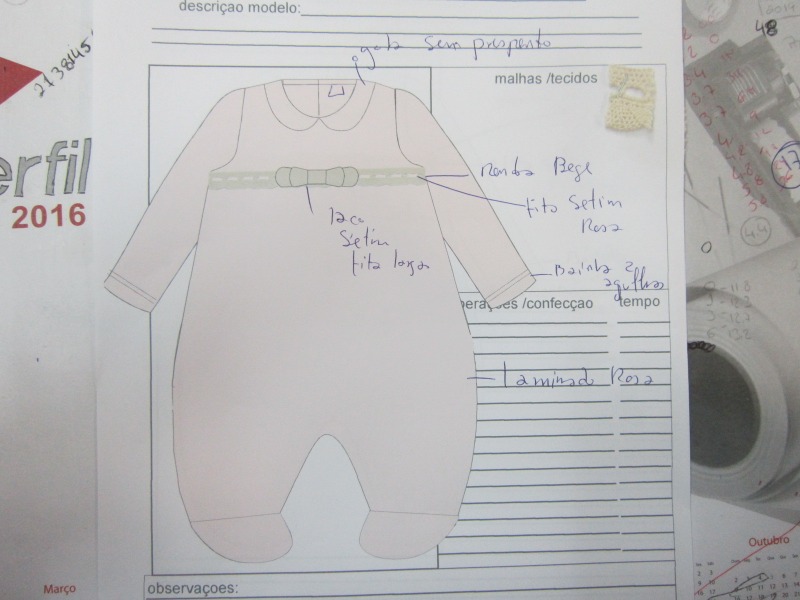 descriçao modelo:
gola sem presponto
malhas /tecidos
Renda Bege
fita Setim
Rosa
laço
Setim
fita larga
Bainha 2
agulhas
/confecçao
tempo
Laminado Rosa
observaçoes:
erfil
2016
Março
Outubro
48
17
4.4